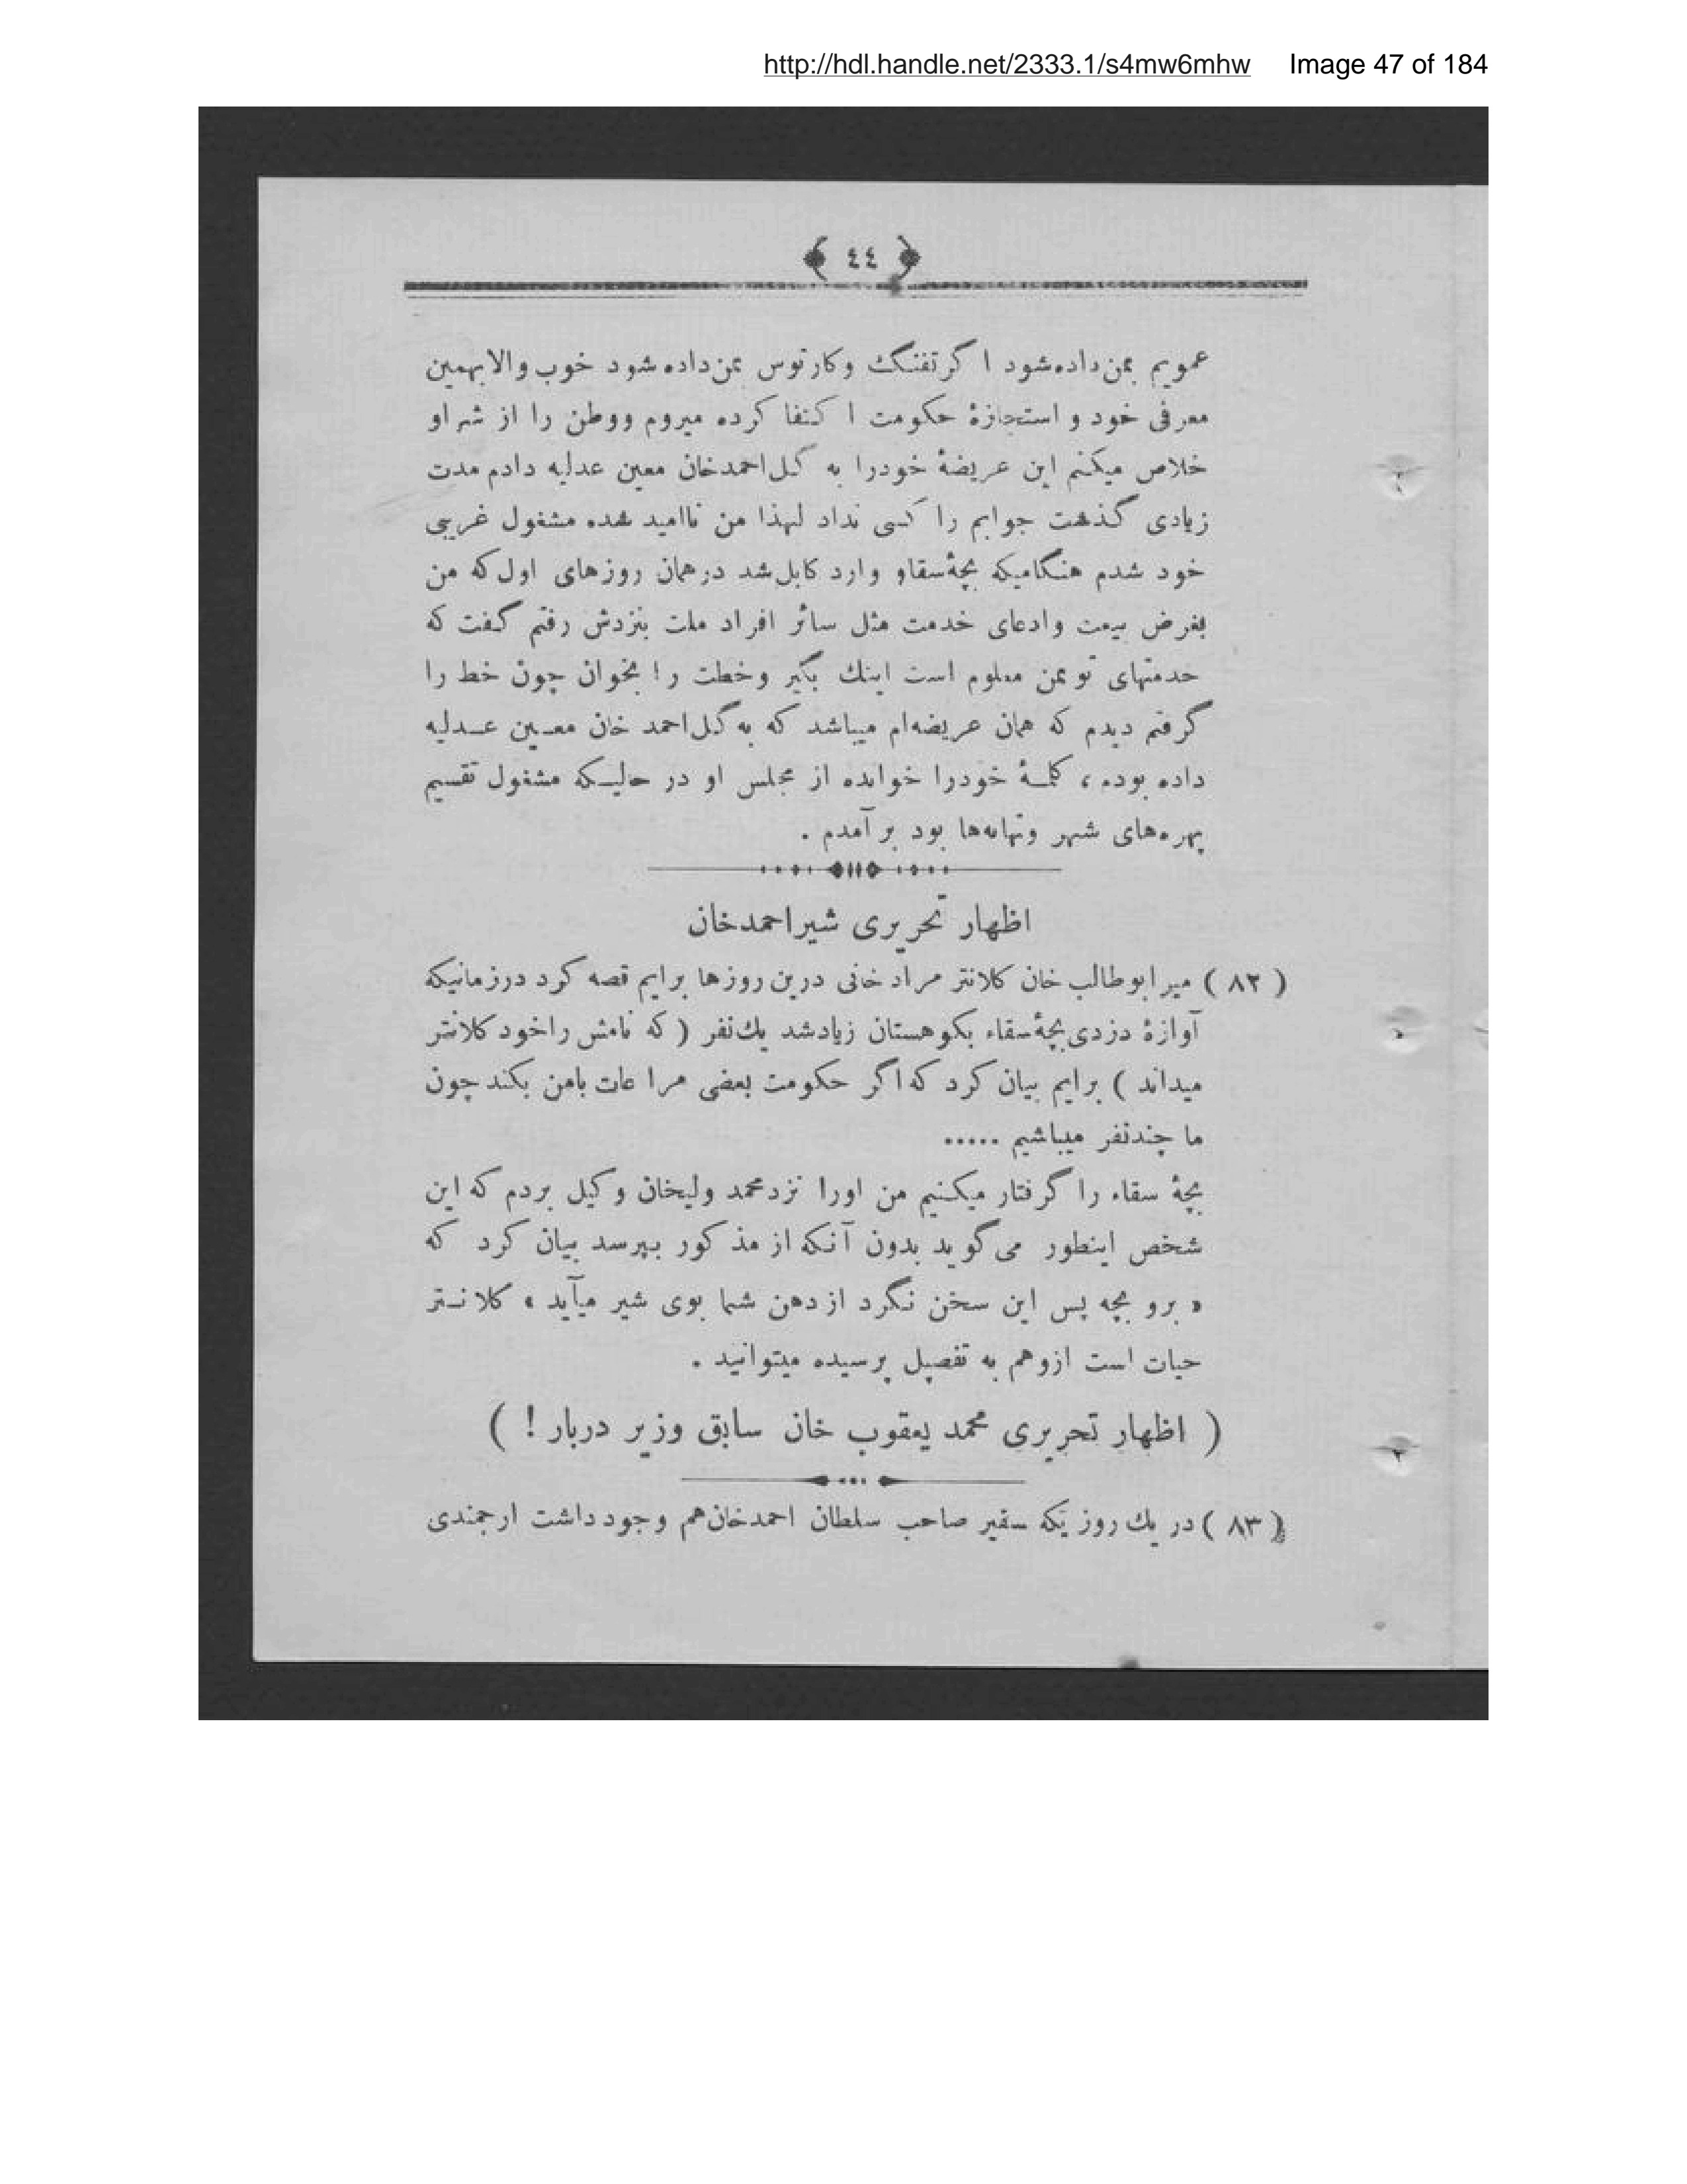 http://hdl.handle.net/2333.1/s4mw6mhw Image 47 of 184
﴿ ٤٤ ﴾
عمویم بمن داده شود ا گر تفنگ وکارتوس بمن داده شود خوب والا بهمین
معرفی خود و استجازهٔ حکومت ا کتفا کرده میروم ووطن را از شر او
خلاص میکنم این عریضهٔ خودرا به گل احمدخان معین عدلیه دادم مدت
زیادی گذشت جوابم را کسی نداد لهذا من ناامید شده مشغول غریبی
خود شدم هنگامیکه بچهٔ سقاو وارد کابل شد در همان روزهای اول که من
بغرض بیعت وادعای خدمت مثل سائر افراد ملت بنزدش رفتم گفت که
خدمتهای تو بمن معلوم است اینك بگیر وخطت را بخوان چون خط را
گرفتم دیدم که همان عریضه‌ام میباشد که به گل احمد خان معین عدلیه
داده بوده ، کلمهٔ خودرا خوانده از مجلس او در حالیکه مشغول تقسیم
پهره‌های شهر وتهانه‌ها بود بر آمدم .
اظهار تحریری شیراحمدخان
( ۸۲ ) میر ابوطالب خان کلانتر مراد خانی درین روزها برایم قصه کرد درزمانیکه
آوازهٔ دزدی بچهٔ سقاء بکوهستان زیادشد یك نفر ( که نامش را خود کلانتر
میداند ) برایم بیان کرد که اگر حکومت بعضی مراعات بامن بکند چون
ما چندنفر میباشیم .....
بچهٔ سقاء را گرفتار میکنیم من اورا نزد محمد ولیخان وکیل بردم که این
شخص اینطور می گوید بدون آنکه از مذکور بپرسد بیان کرد که
« برو بچه پس این سخن نگرد از دهن شما بوی شیر میآید » کلانتر
حیات است ازوهم به تفصیل پرسیده میتوانید .
( اظهار تحریری محمد یعقوب خان سابق وزیر دربار ! )
( ۸۳ ) در یك روز یکه سفیر صاحب سلطان احمدخان هم وجود داشت ارجمندی